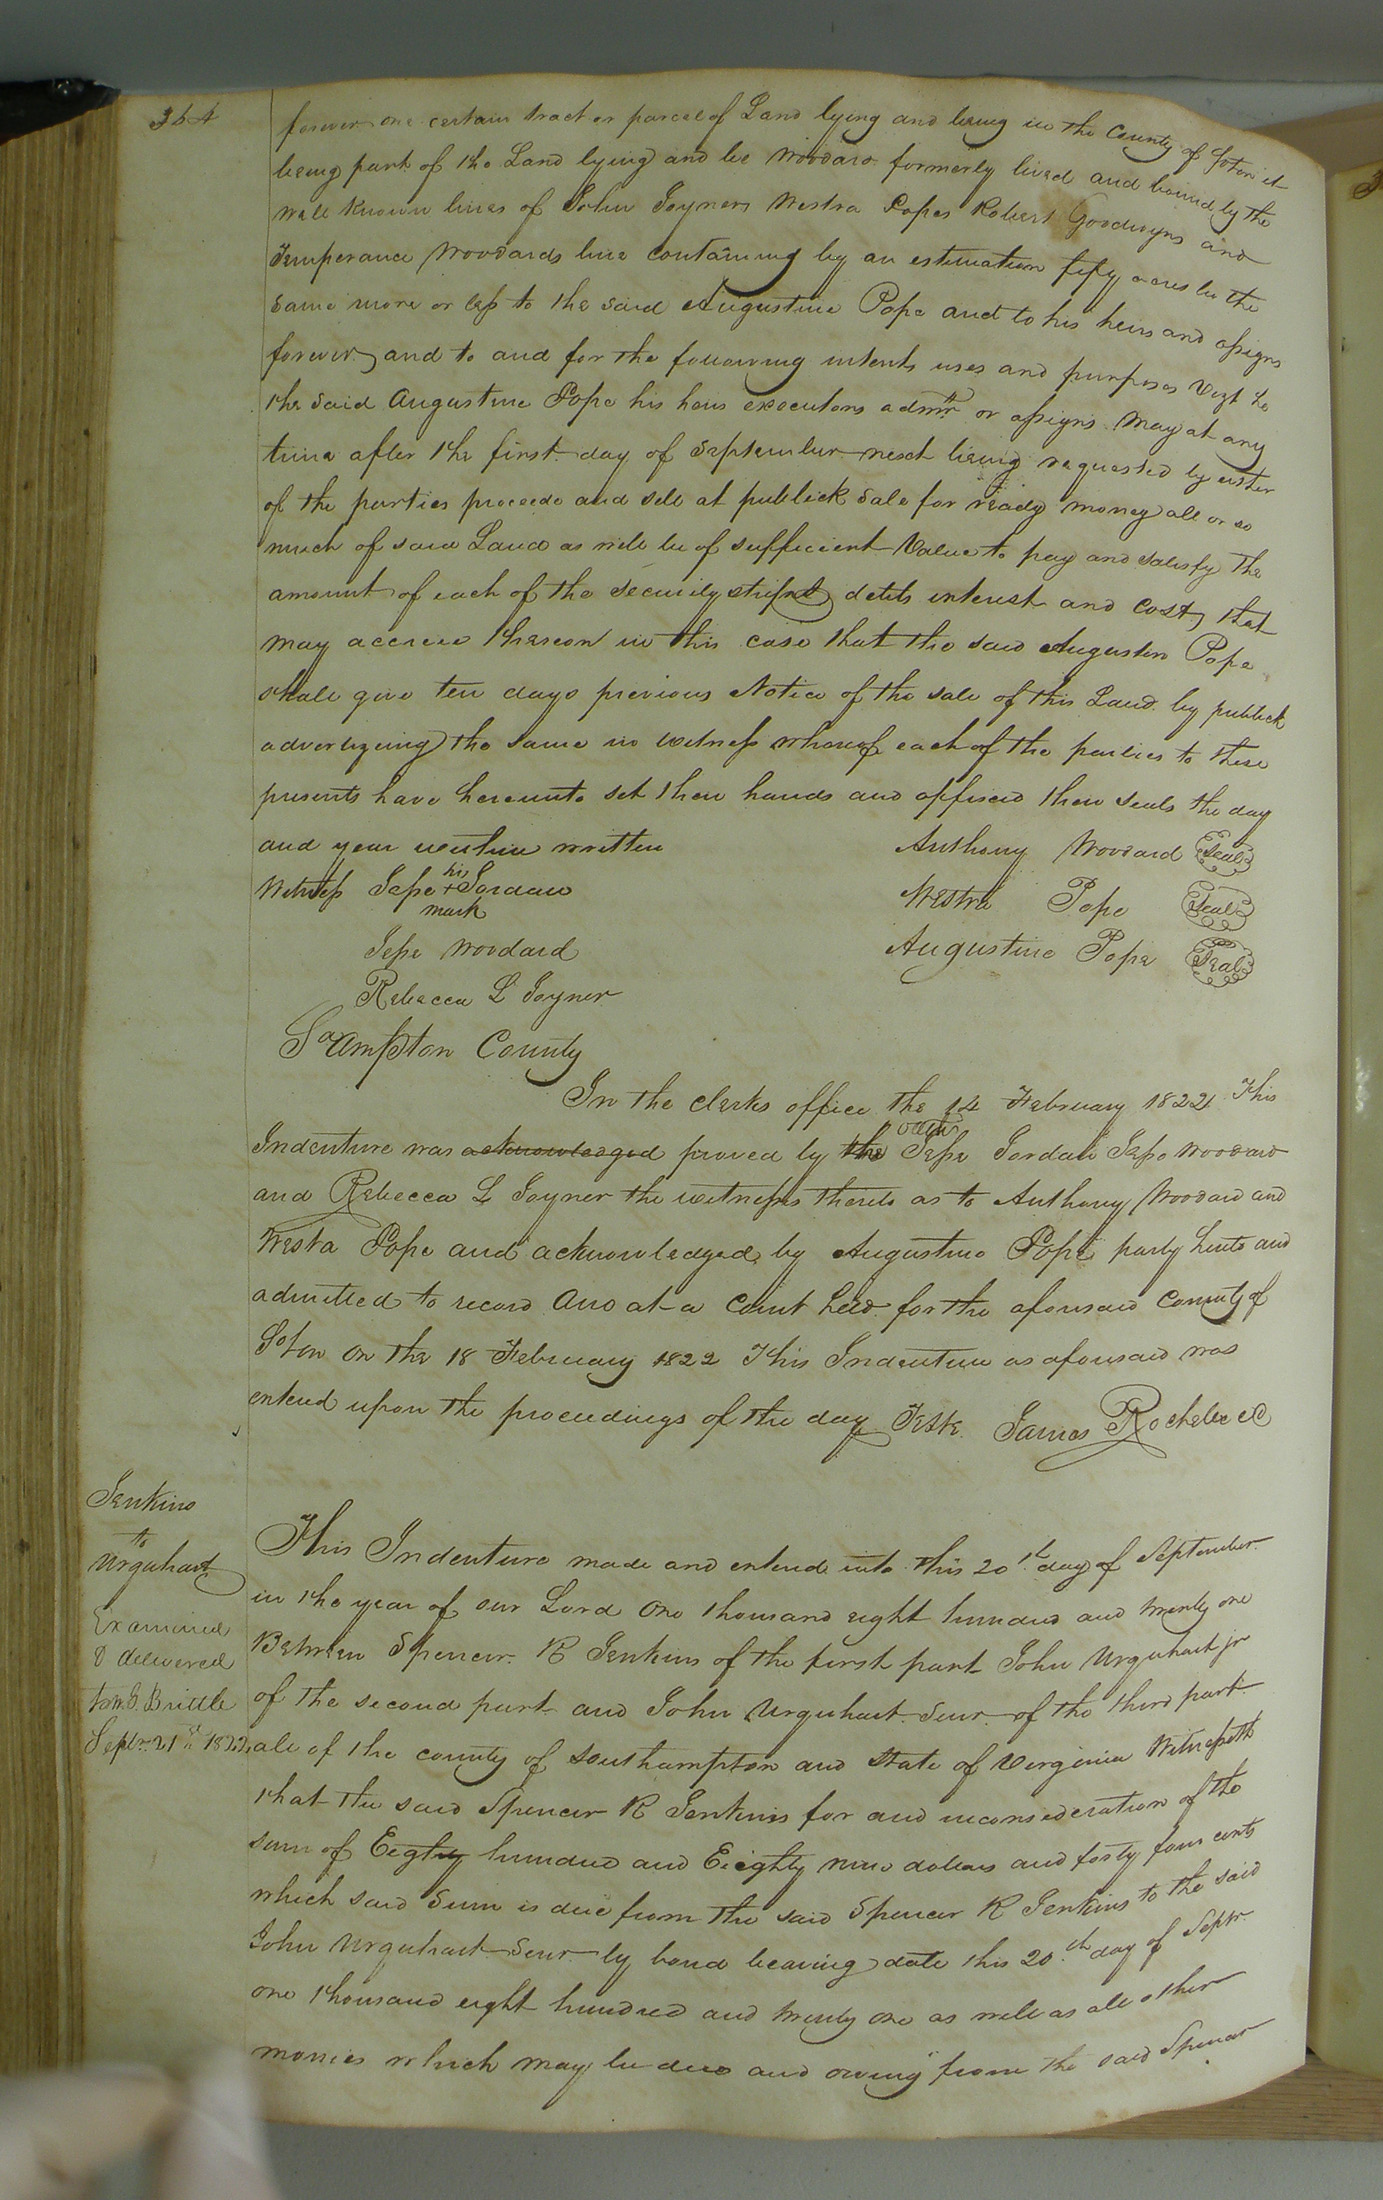 364
forever one certain tract or parcel of Land lying and being in the County of Soton it
being part of the Land lying and be Woodard formerly lived and bound by the
well known lines of John Joyners Westra Popes Robert Goodwyns and
Temperance Woodards line containing by an estimation fify acres be the
same more or less to the said Augustine Pope and to his heirs and assigns
forever and to and for the following intents uses and purposes Vizt he
the said Augustine Pope his heirs executors admrs or assigns may at any
time after the first day of September next being requested by either
of the parties proceede and sell at publick sale for ready money all or so
much of said Land as will be of sufficient Value to pay and satisfy the
amount of each of the security debts interest and cost, that
may accrew thereon in this case that the said Augusten Pope
shall give ten days previous Notice of the sale of this Land by publick
advertizeing the same in witness whereof each of the parties to these
presents have hereunto set their hands and affixed their seals the day
and year within written Anthony Woodard Seal
Witness Jesse his + mark Jordan Westra Pope Seal
Jesse Woodard Augustine Pope Seal
Rebecca L Joyner
Soampton County
In the clerks office the 14 February 1822 This
Indenture was acknowledged proved by the oaths Jesse Jordan Jesse Woodard
and Rebecca L Joyner the witnesses thereto as to Anthony Woodard and
Westra Pope and acknowledged by Augustine Pope party hereto and
admitted to record And at a court held for the aforesaid County of
Soton on the 18 February 1822 This Indenture as aforesaid was
entered upon the proceedings of the day Teste James Rochelle CC
Jenkins
to
Urquhart
Examined
& delivered
to W. G. Brittle
Septr. 21st 1822
This Indenture made and entered into this 20th day of September
in the year of our Lord One thousand eight hundred and twenty one
Between Spencer R Jenkins of the first part John Urquhart jr
of the second part and John Urquhart Senr of the third part
all of the county of Southampton and State of Virginia Witnesseth
that the said Spencer R Jenkins for and inconsideration of the
sum of Eighty hundred and Eighty nine dollars and forty four cents
which said Sum is due from the said Spencer R Jenkins to the said
John Urquhart Senr by bond bearing date this 20th day of Septr
one thousand eight hundred and twenty one as well as all other
monies which may be due and owing from the said Spencer